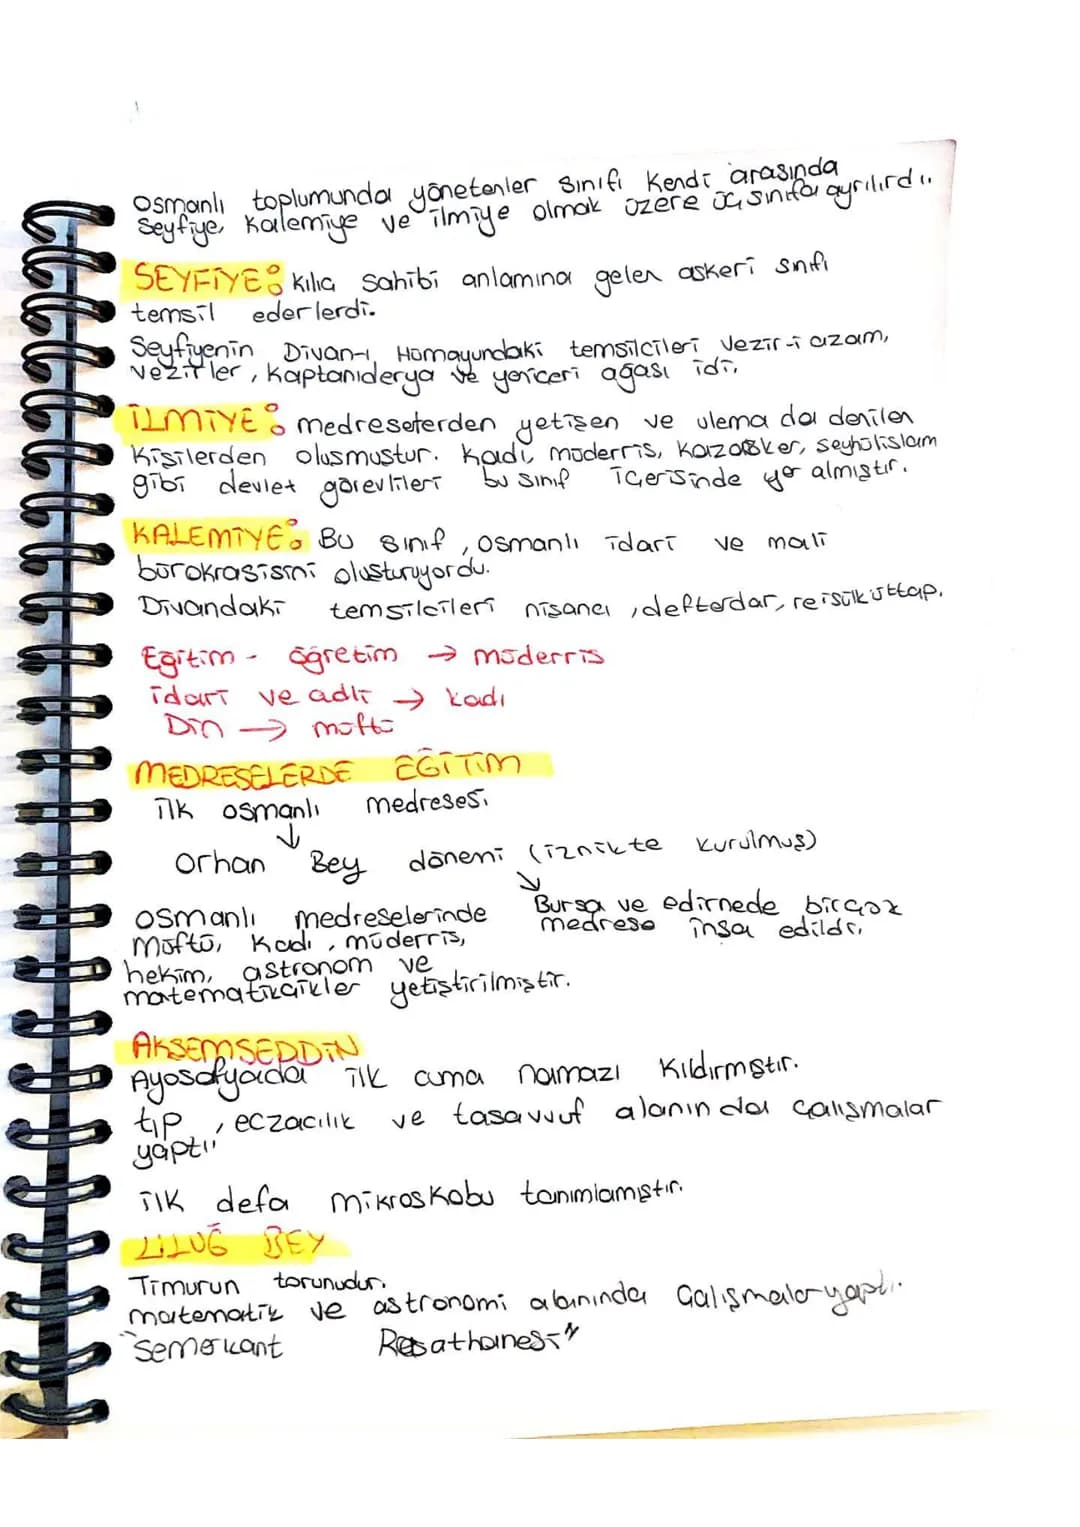 Osmanlı toplumunda yönetenler sınıfı kendi arasında
Seyfiye, Kalemiye ve ilmiye olmak üzere üç sınıfa ayrılırdı.
SEYFİYE: Kılıç sahibi anlamına gelen askeri sınıfı
temsil ederlerdi.
Seyfiyenin Divan-ı Hümayundaki temsilcileri vezir-i azam,
vezirler, kaptanıderya ve yeniçeri ağası idi.
İLMİYE: medreselerden yetişen ve ulema da denilen
kişilerden oluşmuştur. Kadı, müderris, kazasker, şeyhülislam
gibi devlet görevlileri bu sınıf içerisinde yer almıştır.
KALEMİYE: Bu sınıf, Osmanlı idari ve mali
bürokrasisini oluşturuyordu.
Divandaki temsilcileri nişancı, defterdar, reisülküttap.
Eğitim - öğretim → müderris
idari ve adli → kadı
Din → müftü
MEDRESELERDE EĞİTİM
ilk osmanlı medresesi
↓
Orhan Bey dönemi (iznikte kurulmuş)
↘
Bursa ve edirnede birçok
medrese inşa edildi.
Osmanlı medreselerinde
Müftü, Kadı, müderris,
hekim, astronom ve
matematikçikler yetiştirilmiştir.
AKŞEMSEDDİN
Ayasofyada ilk cuma namazı kıldırmıştır.
tıp, eczacılık ve tasavvuf alanında çalışmalar
yaptı
ilk defa mikroskobu tanımlamıştır.
ULUĞ BEY
Timurun torunudur.
matematik ve astronomi alanında çalışmalar yaptı.
"Semerkant Rasathanesi"